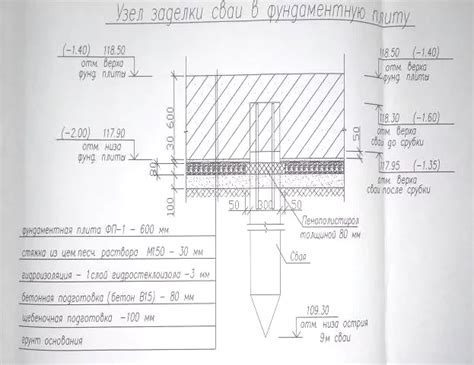 Узел заделки сваи в фундаментную плиту
(-1.40) 118.50
отм. верха
фунд. плиты
118.50 (-1.40)
отм. верха
фунд. плиты
600
30
118.30 (-1.60)
отм. верха
сваи до срубки
50
(-2.00) 117.90
отм. низа
фунд. плиты
117.95 (-1.35)
отм. верха
сваи после срубки
80
100
50 300 50
Пенополистирол
толщиной 80 мм
Свая
фундаментная плита ФП-1 - 600 мм
стяжка из цем.песч. раствора М150 - 30 мм
гидроизоляция - 1 слой гидростеклоизола -3 мм
бетонная подготовка (бетон В15) - 80 мм
щебеночная подготовка -100 мм
грунт основания
109.30
отм. низа острия
9м сваи